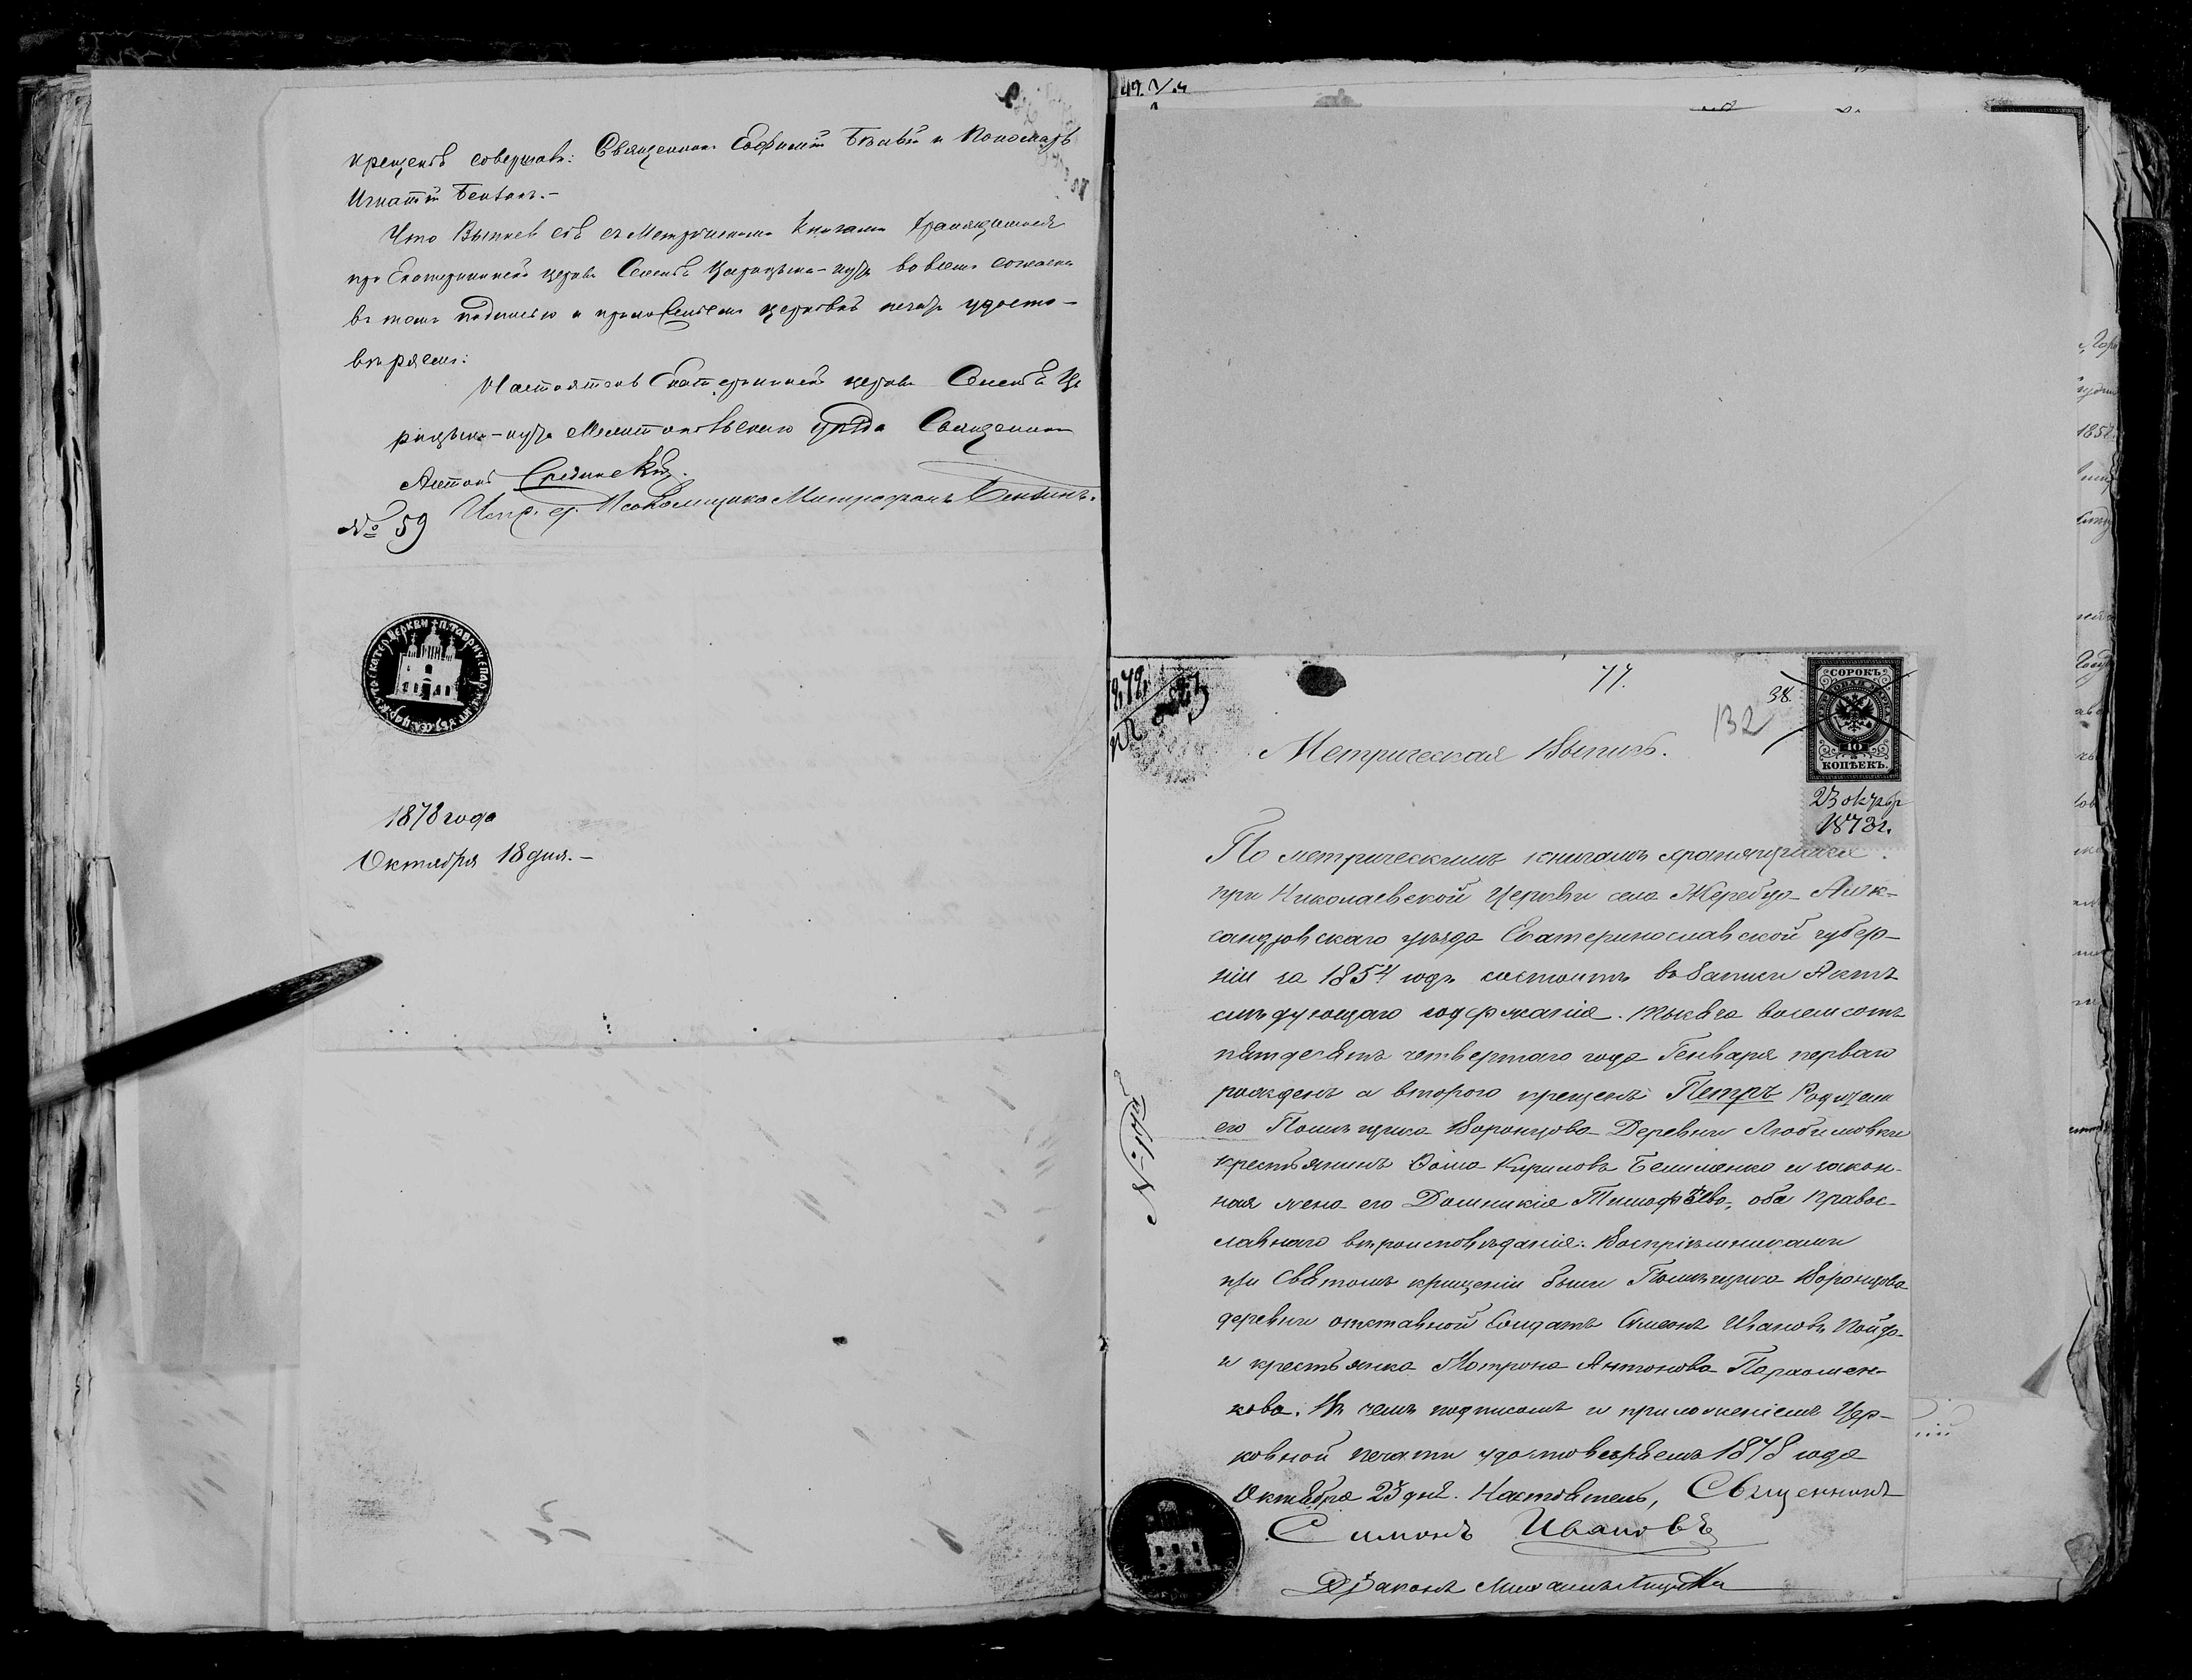 крещенъ совершалъ: Священникъ Евфимій и Пономарь
Игнатій
Что Выпись сія съ Метрическими Книгами хранящимися
при Екатерининской церкви Селенія Царицына-кута во всемъ согласна
въ томъ подписью и приложеніемъ церковной печати удосто-
вѣряемъ:
Настоятель Екатерининской церкви Селенія Ца
рицына-кута Мелитопольскаго уѣзда Священникъ
Антоній
№ 59 Испр. д. Псаломщика Митрофанъ
1878 года
Октября 18 дня.-
77.
38.
132
СОРОКЪ
40
КОПѢЕКЪ.
23 октября
1878 г.
Метрическая Выпись.
По метрическимъ книгамъ хранящимся
при Николаевской Церкви села Жеребца Алек-
сандровскаго уѣзда Екатеринославской губер-
ніи за 1854 годъ состоитъ въ записи Актъ
слѣдующаго содержанія. Тысяча восемсотъ
пятдесятъ четвертаго года Генваря перваго
рожденъ а втораго крещенъ Петръ Родители
его Помѣщика Воронцова Деревни Любимовки
крестьянинъ Ѳома Кириловъ и закон-
ная жена его Домникія Тимофѣева, оба Правос-
лавнаго вѣроисповѣданія: Воспріемниками
при Святомъ крещеніи были Помѣщика Воронцова
деревни отставной Солдатъ Симеонъ Ивановъ
и крестьянка Матрона Антонова Пархомен-
кова. Въ чемъ подписомъ и приложеніемъ Цер-
ковной печати удостовѣряемъ 1878 года
Октября 23 дня. Настоятель, Священникъ
Симонъ Ивановъ
Діаконъ Михаилъ